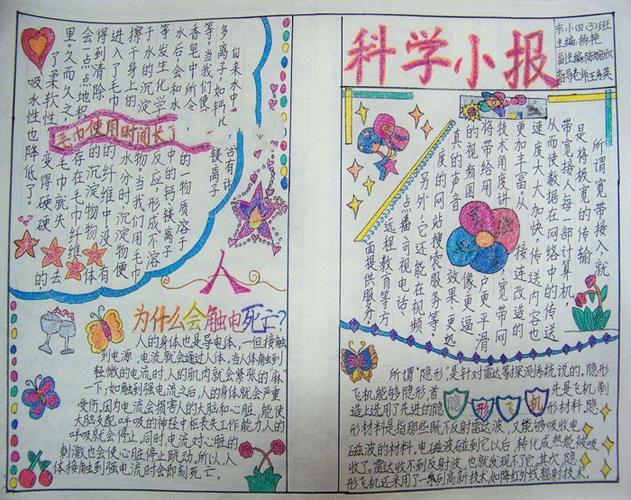 科学小报
东小四(3)班
主编:杨艳
所谓宽带接入就
是将极宽的传输
带宽接入每一部计算机
从而使数据在网络中的传送
速度大大加快,传送内容也
更加丰富。从
接连改造的
技术角度讲
宽带网
将带给用
户更平滑
的视频图
像更逼
真的声音
效果,更远
度的网站搜索服务等。
另外,它还能在视频
点播、可视电话、
远程教育等方
面提供服务。
所谓“隐形”,是针对雷达等探测系统说的。隐形
飞机能够隐形,首
先是飞机制
造上选用了先进的隐
形材料。隐
隐形飞机
形材料是指那些既不反射雷达波,又能够吸收电
磁波的材料。电磁波碰到它以后,转化成热能被吸
收了。雷达收不到反射波,也就发现不了它。其次,隐
形飞机还采用了一系列高新技术,如降红外线辐射技术。
自来水中,含有许
多离子,如钙、镁离子
等,当我们使
香皂中所含
的一物质溶于
水后,会和水
中的钙镁离子
等发生化学
反应,形成不溶
于水的沉淀
物。当我们用毛巾
擦干身上的
水分时,沉淀物便
进入了毛巾
的纤维中,没有
得到清除
的沉淀物,体
会一点点地积
存在毛巾纤维
里。久而久之,
毛巾就失去
了柔软性,
变得硬硬的,
吸水性也降低了。
毛巾使用时间长了
人
为什么会触电死亡?
人的身体也是导电体,一但接触
到电源,电流就会通过人体。当人体触到
轻微的电流时,人的肌肉就会紧张的“麻”
一下;如触到强电流之后,人的身体就会严重
受伤。因为电流会损害人的大脑和心脏,能使
大脑支配呼吸的神经中枢丧失工作能力,人的
呼吸就会停止,同时,电流对心脏的
刺激也会使心脏停止跳动。所以,人
体接触到强电流时会即刻死亡。